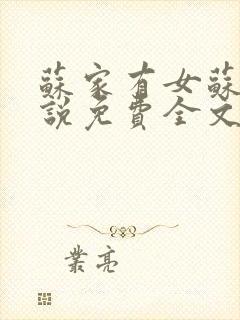 蘇家有女蘇
說免費全文
業亮